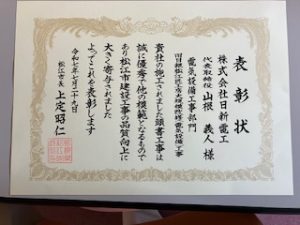 表彰状
株式会社日新電工
代表取締役 山根 義人 様
電気設備工事部門
貴社の施工されました頭書工事は
誠に優秀で他の模範となるもので
あり松江市建設工事の品質向上に
大きく寄与されました
よってこれを表彰します
令和七年七月二十九日
松江市長 上定昭仁